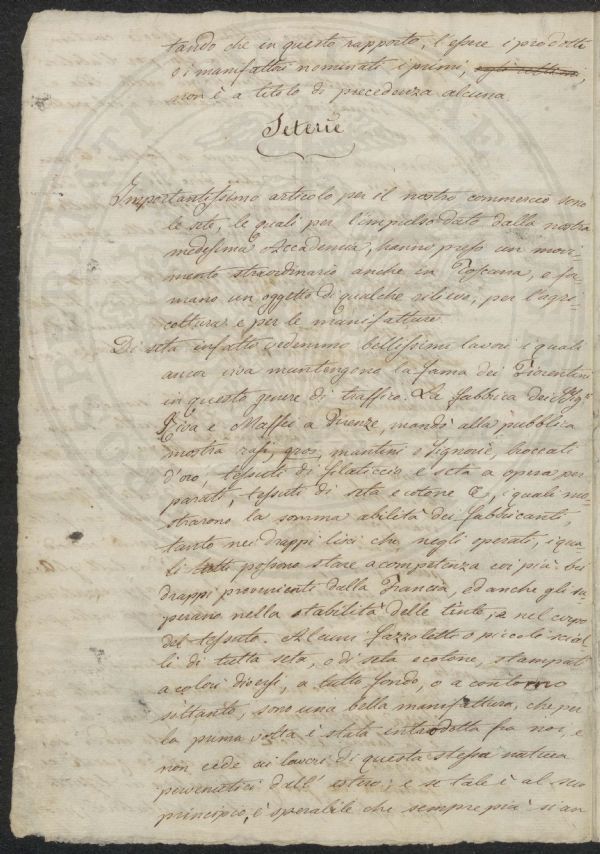 tando che in questo rapporto, l'essere i prodotti
o i manifattori nominati i primi, egli ultimi,
non è a titolo di precedenza alcuna.
Seterie
Importantissimo articolo per il nostro commercio sono
le sete, le quali per l'impulso dato dalla nostra
medesima Accademia, hanno preso un movi-
mento straordinario anche in Toscana, e for
mano un oggetto di qualche rilievo, per l'agri-
coltura e per le manifatture.
Di seta infatto vedemmo bellissimi lavori i quali
ancor viva mantengono la fama dei Fiorentini
in questo genere di traffico. La fabbrica dei Sigri
Riva e Maffei a Firenze, mandò alla pubblica
mostra rasi, gros, mantini o Signorie, broccati
d'oro, tessuti di filaticcio e seta a opera per
parati, tessuti di seta e cotone &, i quali mo-
strarono la somma abilità dei fabbricanti,
tanto nei drappi lisci che negli operati, i qua-
li tutti possono stare a competenza coi più bei
drappi provenienti dalla Francia, ed anche gli su-
perano nella stabilità delle tinte, e nel corpo
del tessuto. Alcuni fazzoletti o piccoli scial-
li di tutta seta, o di seta e cotone, stampati
a colori diversi, a tutto fondo, o a contorno
soltanto, sono una bella manifattura, che per
la prima volta è stata introdotta fra noi, e
non cede ai lavori di questa stessa natura
pervenutici dall'estero; e se tale è al suo
principio, è sperabile che sempre più si an